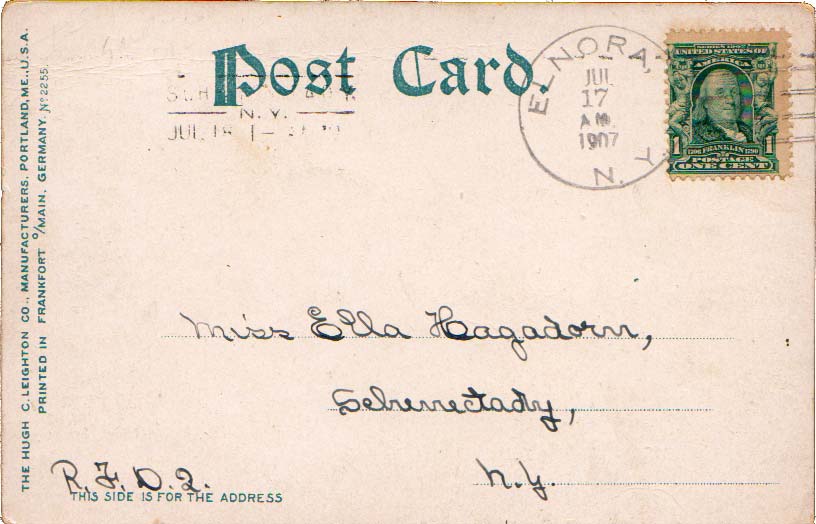 THE HUGH C. LEIGHTON CO., MANUFACTURERS, PORTLAND, ME., U.S.A.
PRINTED IN FRANKFORT o/MAIN, GERMANY. No 2255.
Post Card.
N.Y.
JUL 18
ELNORA,
JUL
17
A M
1907
N. Y.
SERIES 1902
UNITED STATES OF
AMERICA
1 FRANKLIN 1
POSTAGE
ONE CENT
Miss Ella Hagadorn,
Schenectady,
N.Y.
R.F.D.2.
THIS SIDE IS FOR THE ADDRESS